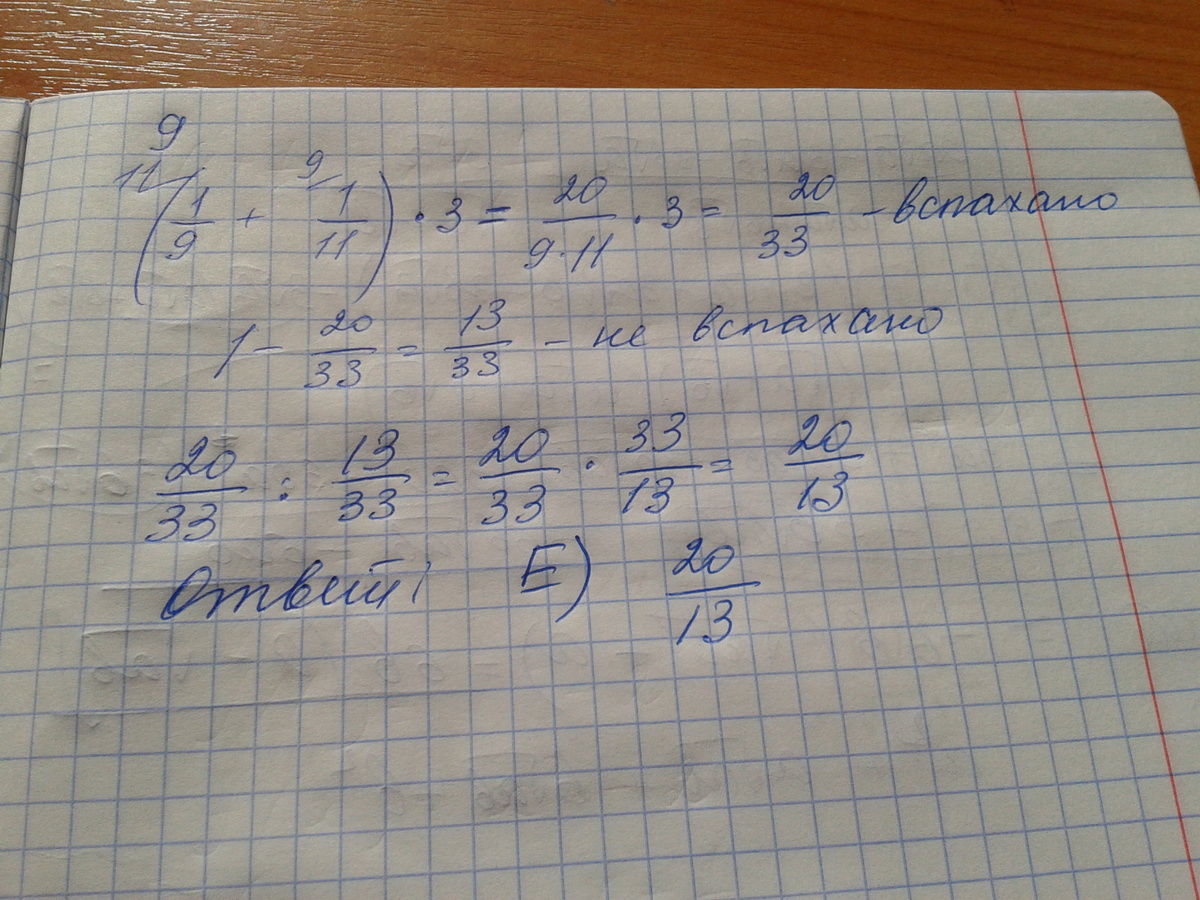 9
11/ 9/
(1/9 + 1/11) · 3 = 20/9·11 · 3 = 20/33 - вспахано
1 - 20/33 = 13/33 - не вспахано
20/33 : 13/33 = 20/33 · 33/13 = 20/13
Ответ: E) 20/13